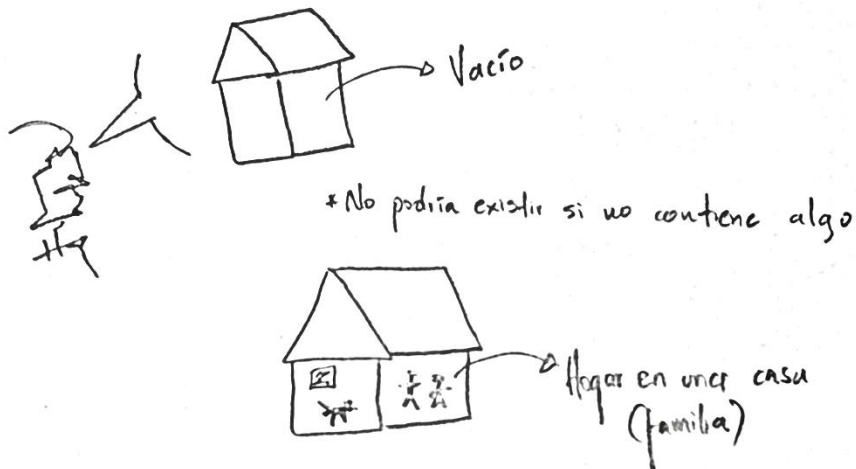 Vacío
* No podría existir si no contiene algo
Hogar en una casa
(familia)